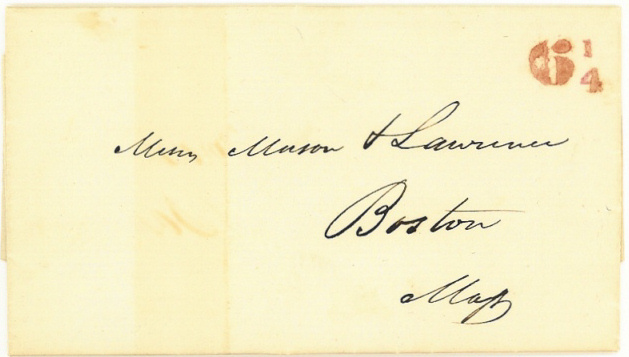 6 1/4
Messrs Mason & Lawrence
Boston
Mass